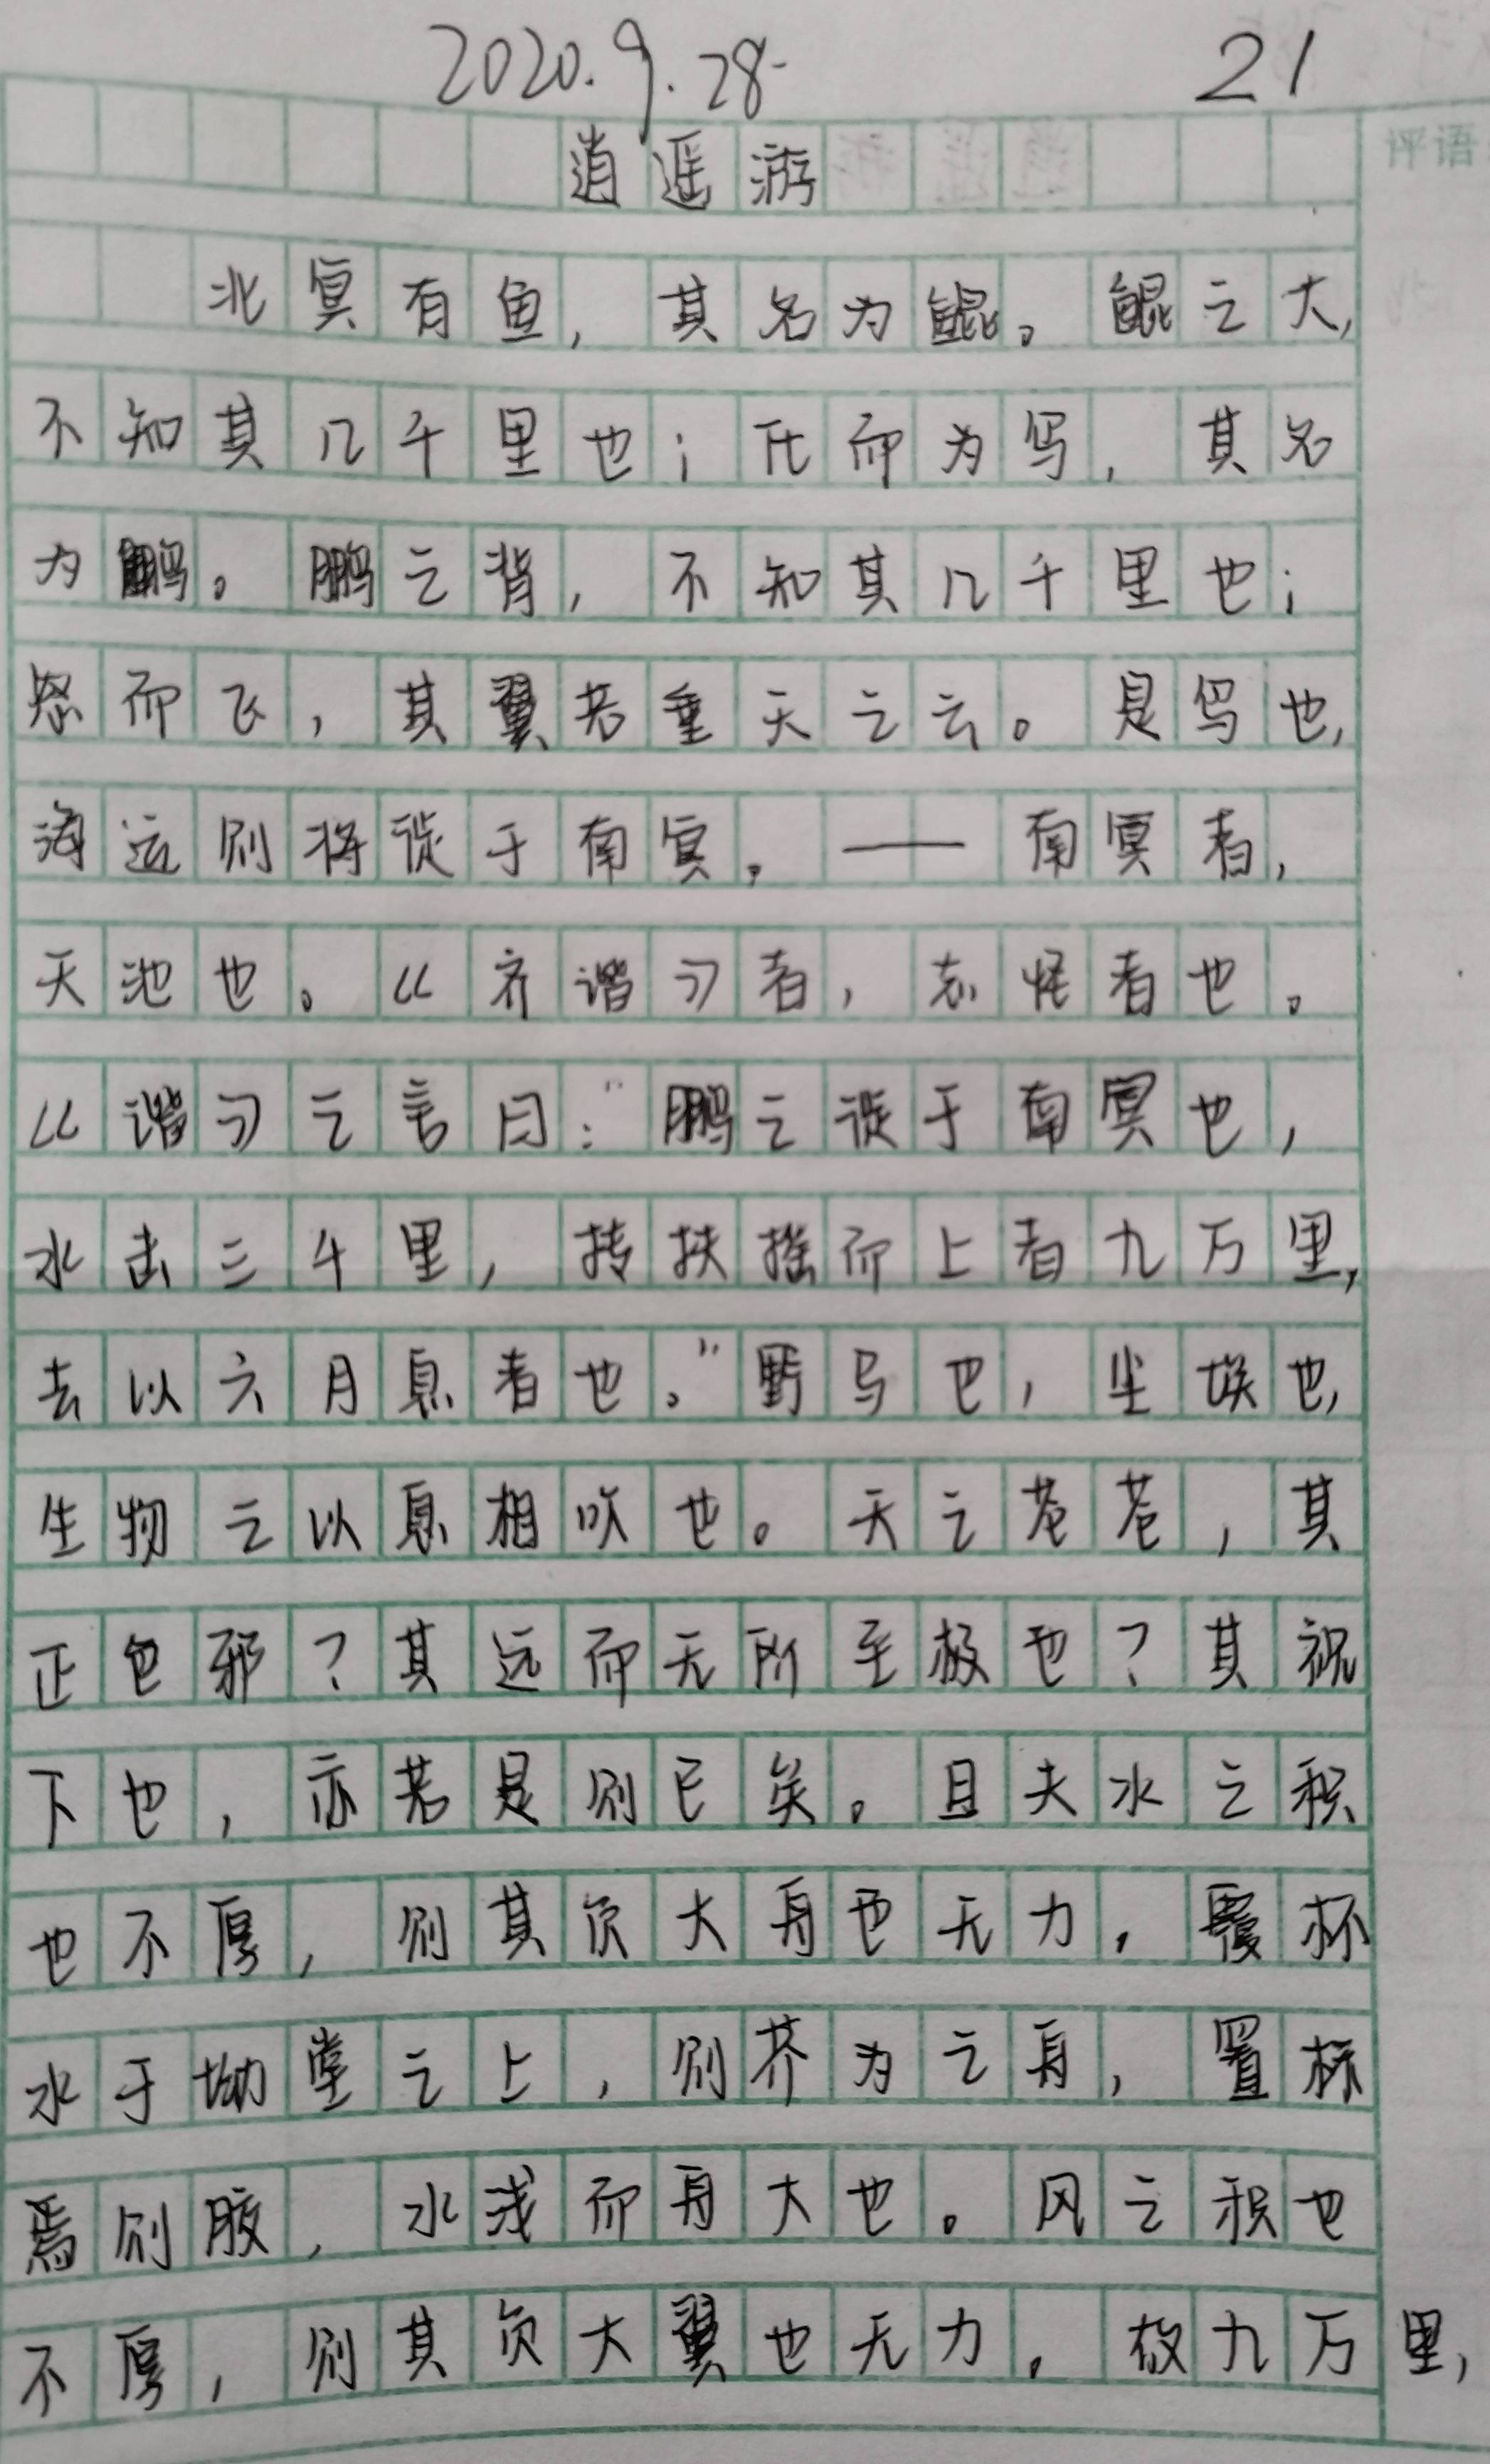 2020.9.28 21
逍遥游
评语
北冥有鱼，其名为鲲。鲲之大，
不知其几千里也；化而为鸟，其名
为鹏。鹏之背，不知其几千里也；
怒而飞，其翼若垂天之云。是鸟也，
海运则将徙于南冥。——南冥者，
天池也。《齐谐》者，志怪者也。
《谐》之言曰：“鹏之徙于南冥也，
水击三千里，抟扶摇而上者九万里，
去以六月息者也。”野马也，尘埃也，
生物之以息相吹也。天之苍苍，其
正色邪？其远而无所至极也？其视
下也，亦若是则已矣。且夫水之积
也不厚，则其负大舟也无力。覆杯
水于坳堂之上，则芥为之舟，置杯
焉则胶，水浅而舟大也。风之积也
不厚，则其负大翼也无力。故九万里，